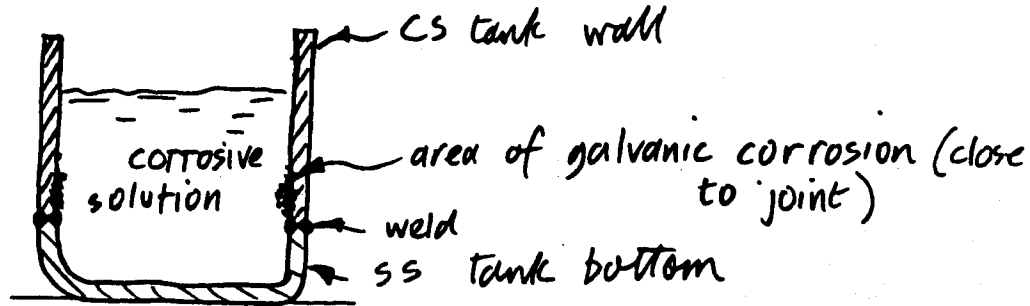 CS tank wall
corrosive
solution
area of galvanic corrosion (close
to joint)
weld
SS tank bottom